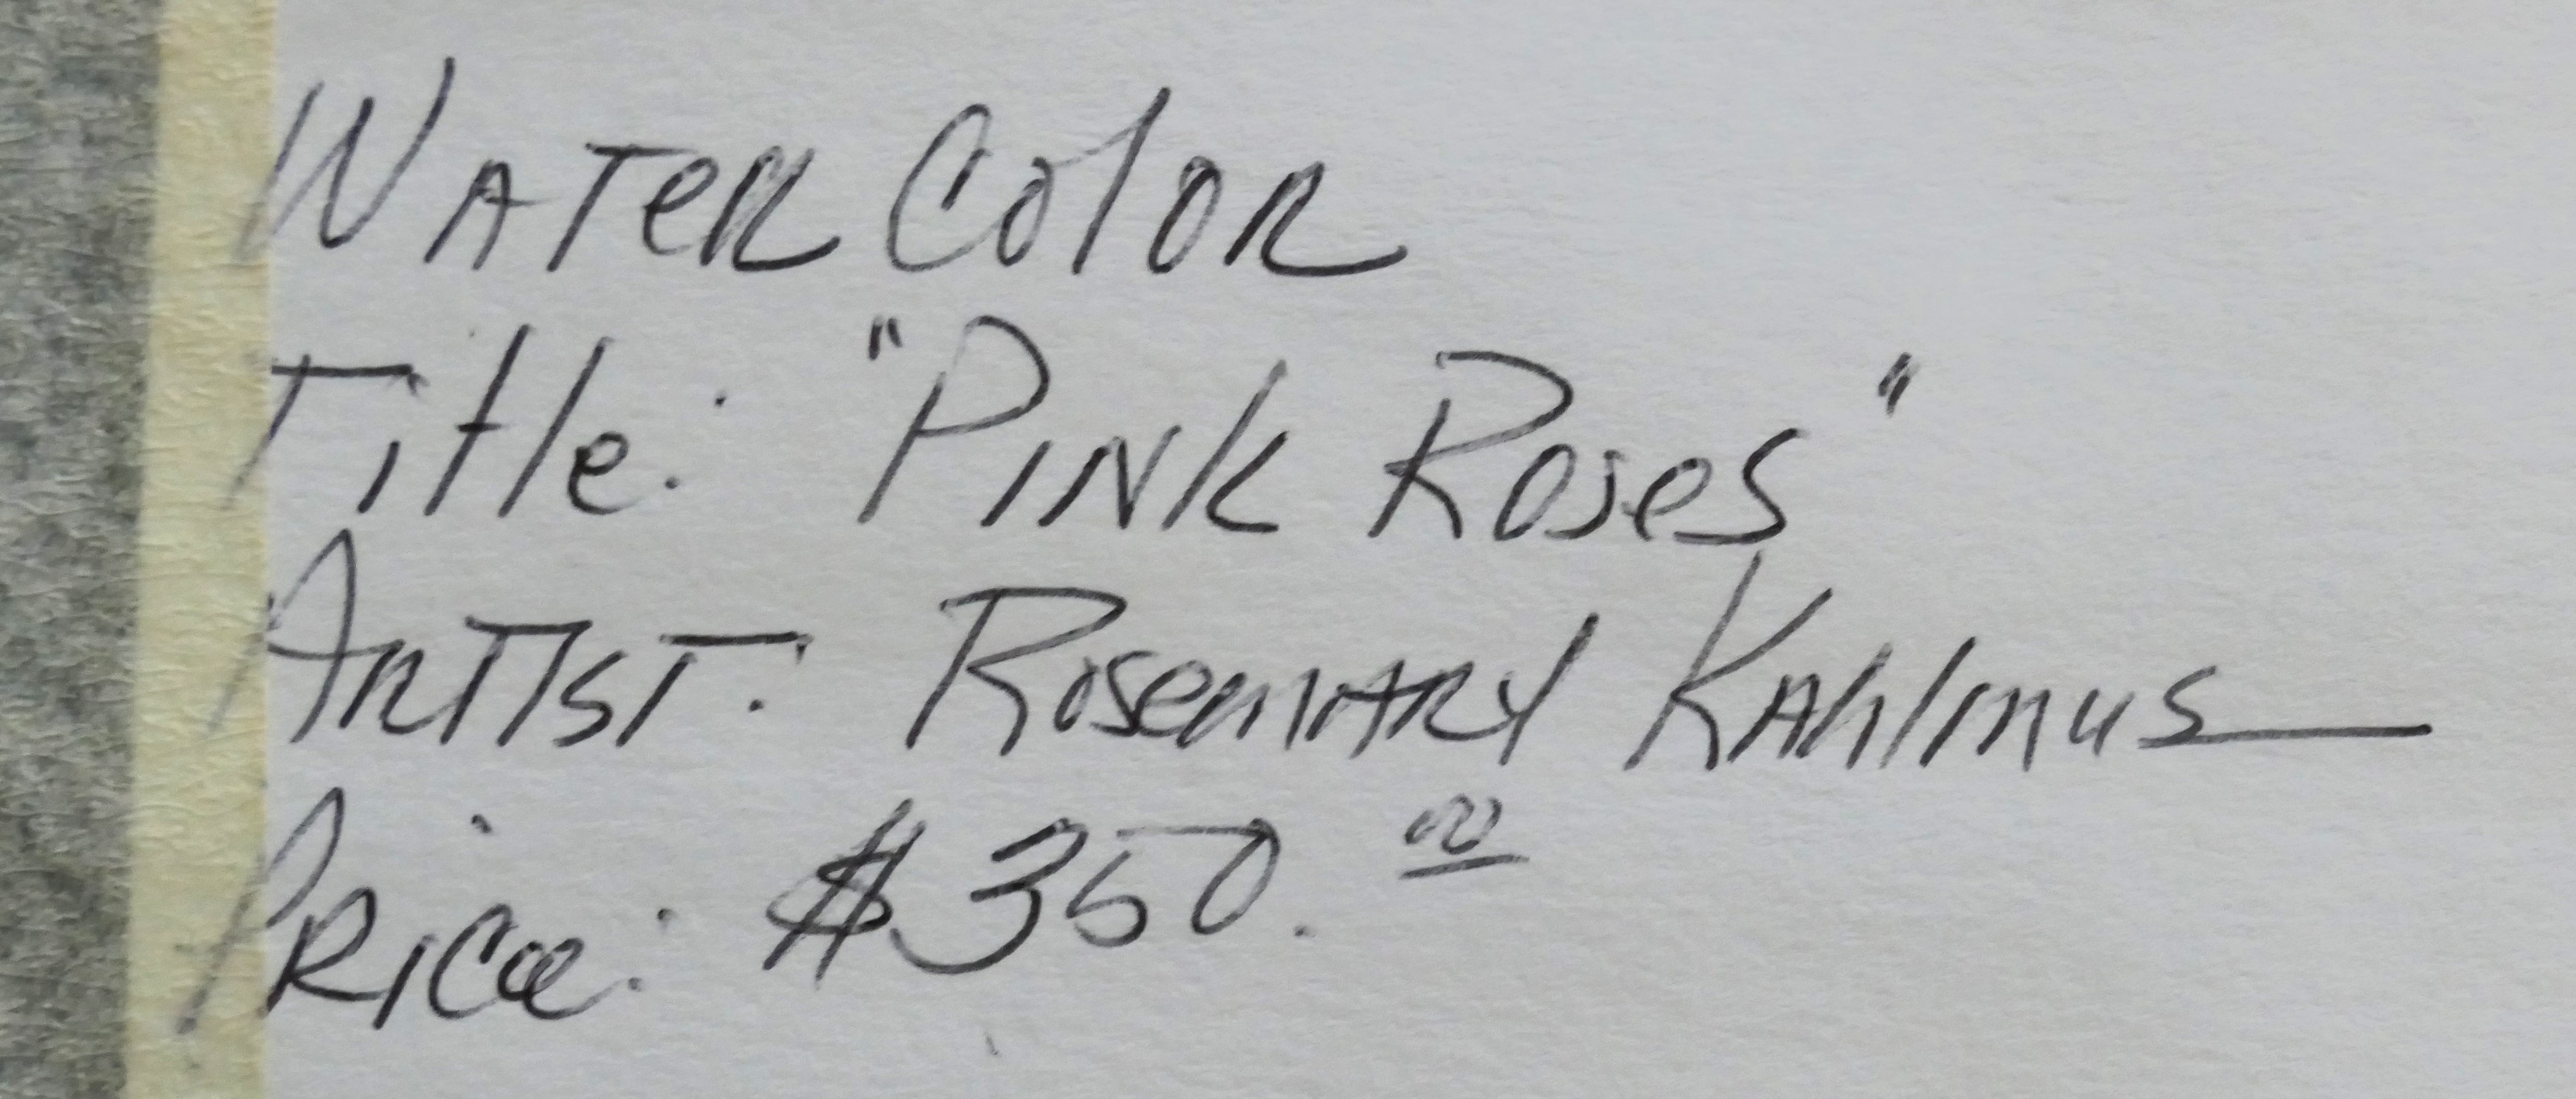 Water Color
Title: "Pink Roses"
Artist: Rosemary Kahlmus
Price: $350.00